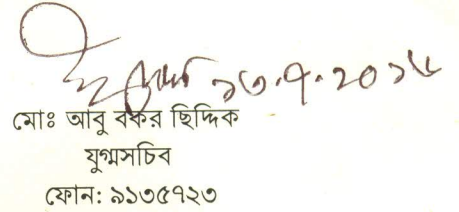 ১৩.৭.২০১৫
মোঃ আবু বকর ছিদ্দিক
যুগ্মসচিব
ফোন: ৯১৩৫৭২৩